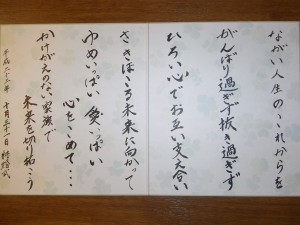 ながい人生のこれからを
がんばり過ぎず抜き過ぎず
ひろい心でお互い支え合い
さきほころ未来に向かって
ゆめいっぱい 愛いっぱい
心をこめて・・・
かけがえのない家族で
未来を切り拓こう
平成二十五年 十月三十一日 結婚式